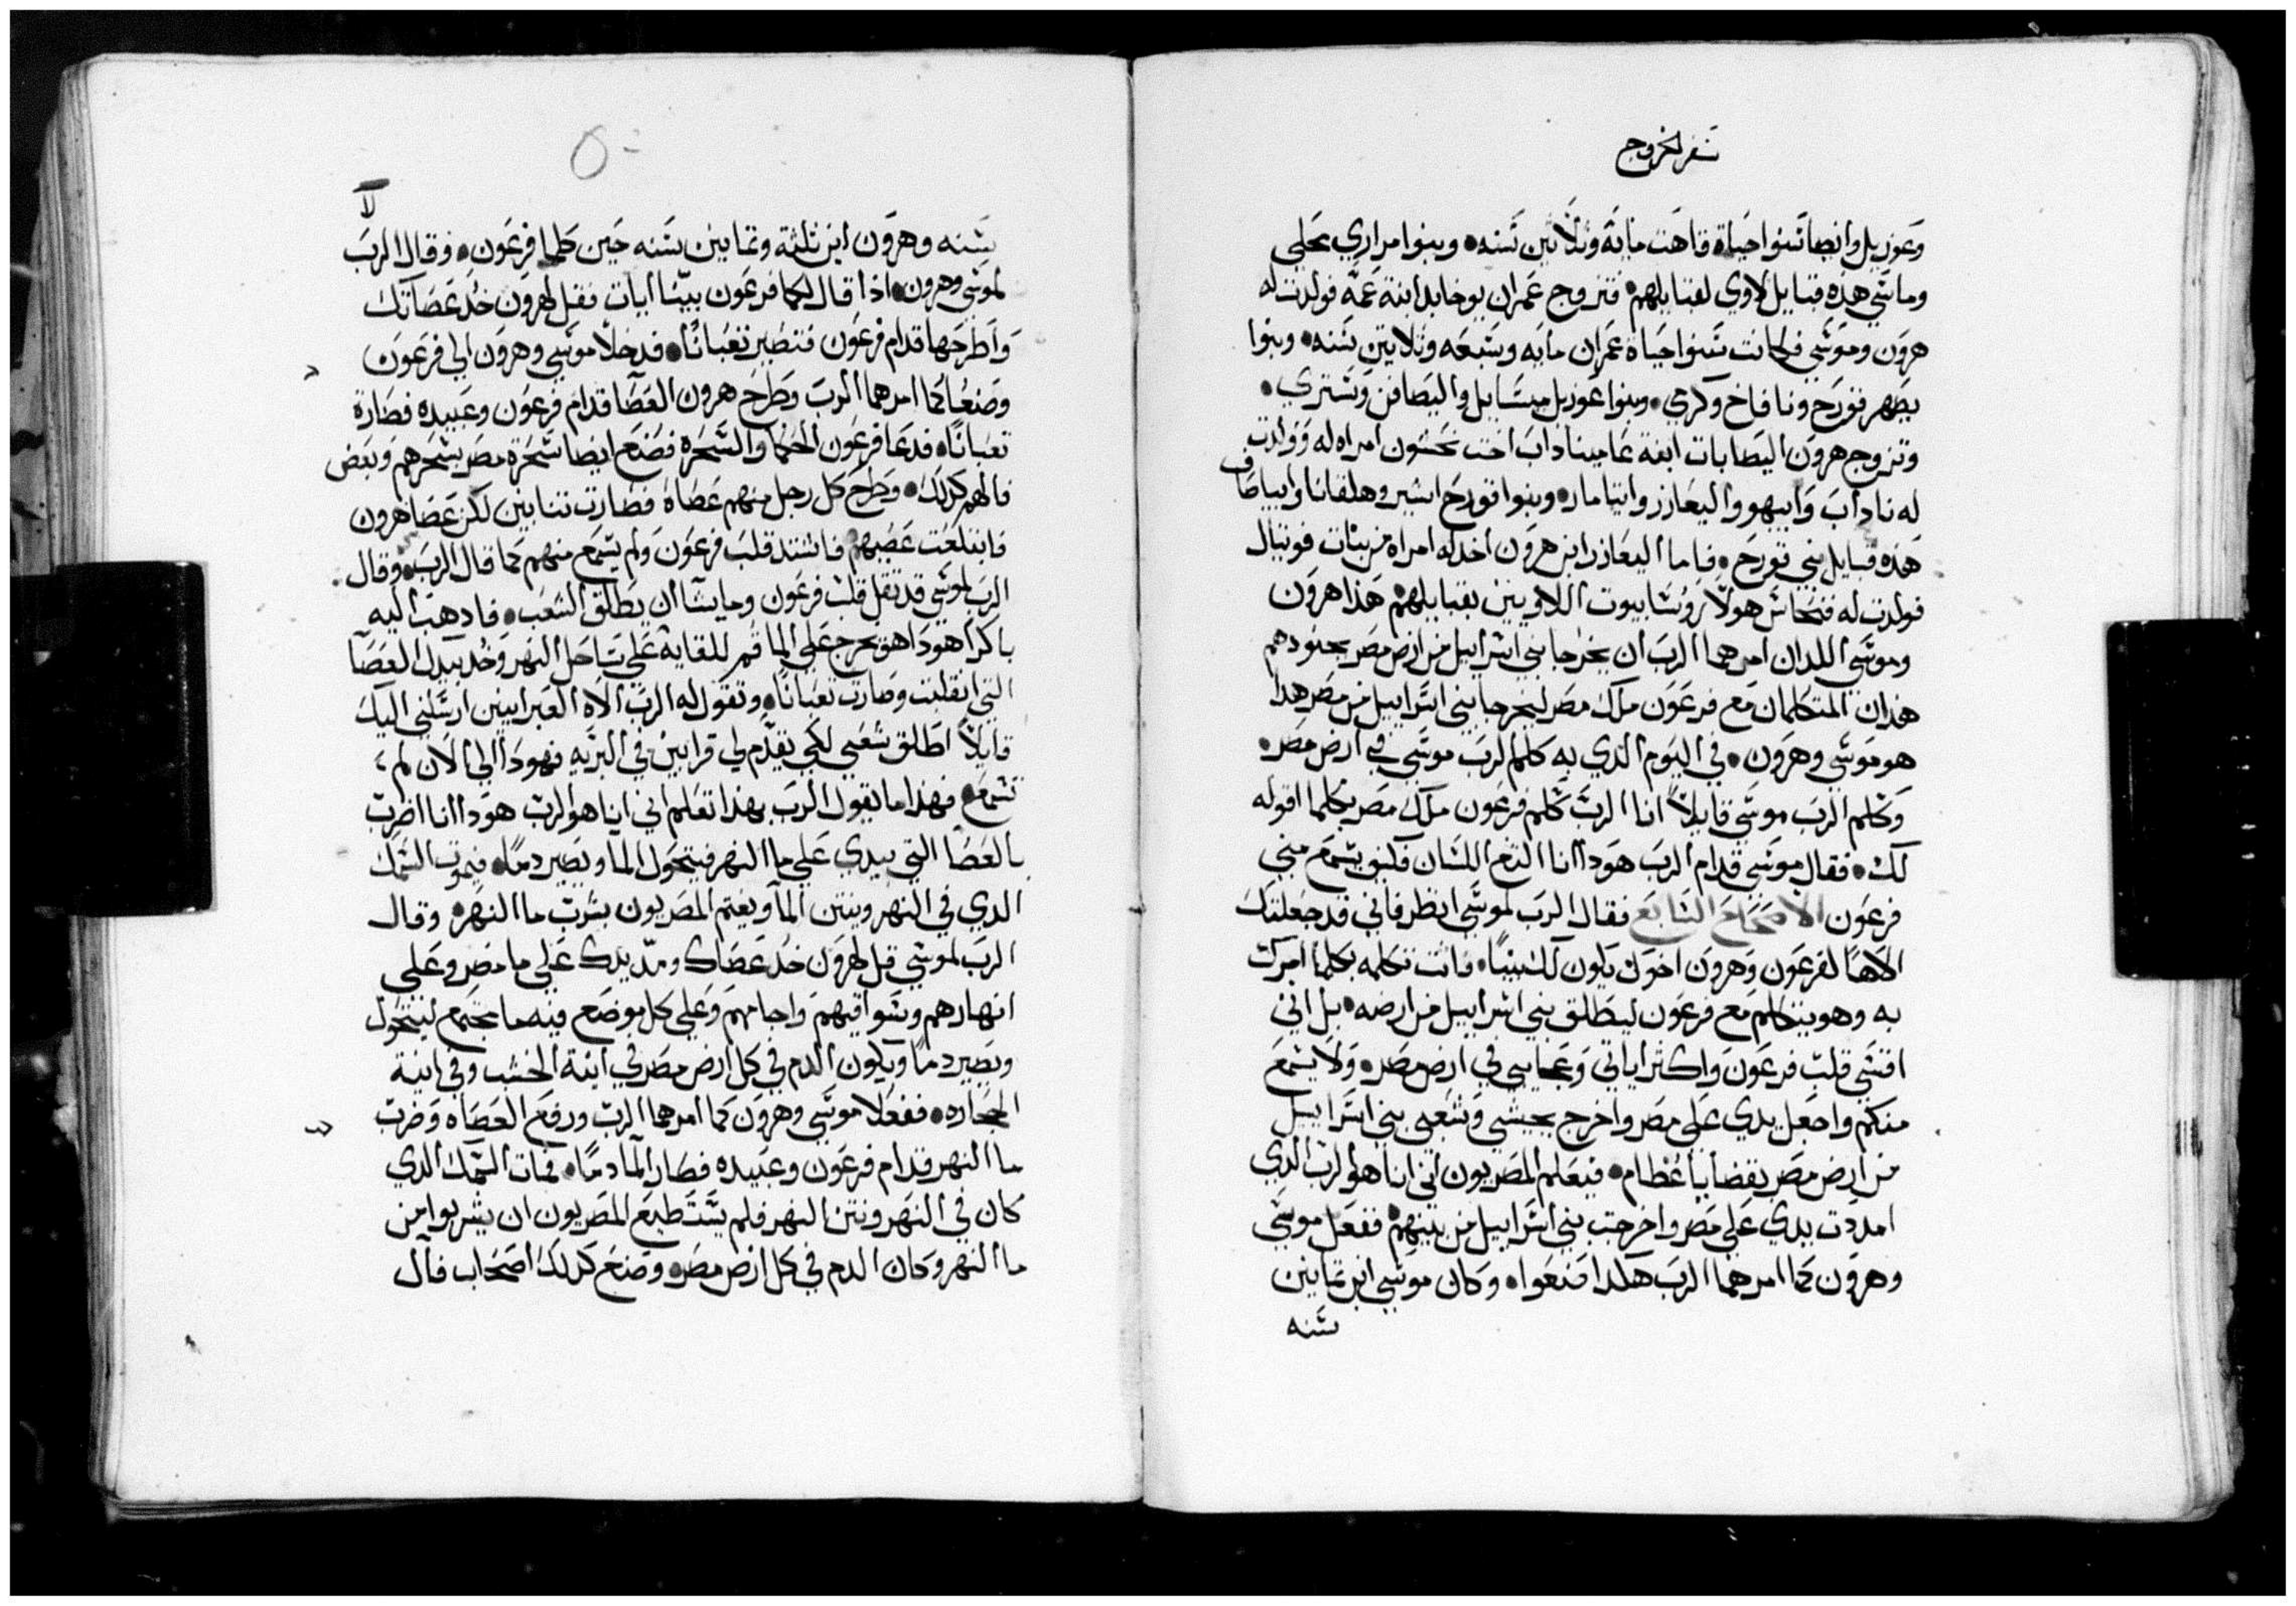 سفر الخروج
وعوزييل وايضا سنوا حياة قاهت مايه وثلاثين سنه وبنوا مراري محلي
وماشي هذه قبايل لاوي لقبايلهم فتزوج عمران يوخابد ابنة عمه فولدت له
هرون وموسي فكانت سنوا حياة عمران مايه وسبعه وثلاتين سنه وبنوا
يصهر قورح ونافاخ وكري وبنوا عوزييل ميسايل واليصافن وستري
وتزوج هرون اليصابات ابنة عاميناداب اخت نحسون امراه له وولدت
له ناداب وابيهو واليعازر وايتامار وبنوا قورح اسير وهلقانا وابياصاف
هذه قبايل بني قورح فاما اليعازر ابن هرون اخد له امراه من بنات فوتيال
فولدت له فنحاس هولا روسا بيوت اللاويين بقبايلهم هذا هرون
وموسي اللدان امرهما الرب ان يخرجا بني اسراييل من ارض مصر بجنودهم
هذان المتكلمان مع فرعون ملك مصر ليخرجا بني اسراييل من مصر هدا
هو موسي وهرون في اليوم الدي به كلم الرب موسي في ارض مصر
وكلم الرب موسي قايلا انا الرب كلم فرعون ملك مصر بكلما اقوله
لك فقال موسي قدام الرب هودا انا التغ اللسان فكيف يسمع مني
فرعون الاصحاح السابع فقال الرب لموسي انظر فاني قد جعلتك
الاها لفرعون وهرون اخوك يكون لك نبيا فانت تكلمه بكلما امرك
به وهو يتكلم مع فرعون ليطلق بني اسراييل من ارضه بل اني
اقسي قلب فرعون واكثر اياتي وعجايبي في ارض مصر ولا يسمع
منكم واجعل يدي علي مصر واخرج بجيشي وشعبي بني اسراييل
من ارض مصر بقضايا عظام فيعلم المصريون اني انا هو الرب الدي
امددت يدي علي مصر واخرجت بني اسراييل من بينهم ففعل موسي
وهرون كما امرهما الرب هكدا صنعوا وكان موسي ابن تمانين
سنه
لا
سنه وهرون ابن ثلثة وتمانين سنه حين كلما فرعون وقال الرب
لموسي وهرون ادا قال لكما فرعون بينا ايات فقل لهرون خد عصاتك
واطرحها قدام فرعون فتصير تعبانا فدخلا موسي وهرون الي فرعون
وصنعا كما امرهما الرب وطرح هرون العصا قدام فرعون وعبيده فصارة
تعبانا فدعا فرعون الحكما والسحرة فصنع ايضا سحرة مصر بسحرهم وبعض
فالهم كدلك وطرح كل رجل منهم عصاه فصارت تنانين لكن عصا هرون
فابتلعت عصيهم فاشتد قلب فرعون ولم يسمع منهم كما قال الرب وقال
الرب لموسي قد ثقل قلب فرعون وما يشا ان يطلق الشعب فادهب اليه
باكرا هودا هو يخرج علي الما قم للقايه علي ساحل النهر وخد بيدك العصا
التي انقلبت وصارت تعبانا وتقول له الرب الاه العبرانيين ارسلني اليك
قايلا اطلق شعبي لكي يقدم لي قرابين في البريه فهودا الي الان لم
تسمع فهذا ما يقول الرب بهذا تعلم اني انا هو الرب هودا انا اضرب
بالعصا التي بيدي علي ما النهر فيتحول الما ويصير دما فيموت السمك
الدي في النهر وينتن الما ويغتم المصريون بشرب ما النهر وقال
الرب لموسي قل لهرون خد عصاك ومد يدك علي ما مصر وعلي
انهارهم وسواقيهم واجامهم وعلي كل موضع فيه ما يجتمع ليتحول
ويصير دما ويكون الدم في كل ارض مصر في انية الخشب وفي انية
الحجاره ففعلا موسي وهرون كما امرهما الرب ورفع العصاه وضرب
ما النهر قدام فرعون وعبيده فصار الما دما فمات السمك الدي
كان في النهر ونتن النهر فلم يستطيع المصريون ان يشربوا من
ما النهر وكان الدم في كل ارض مصر وصنع كدلك اصحاب فال